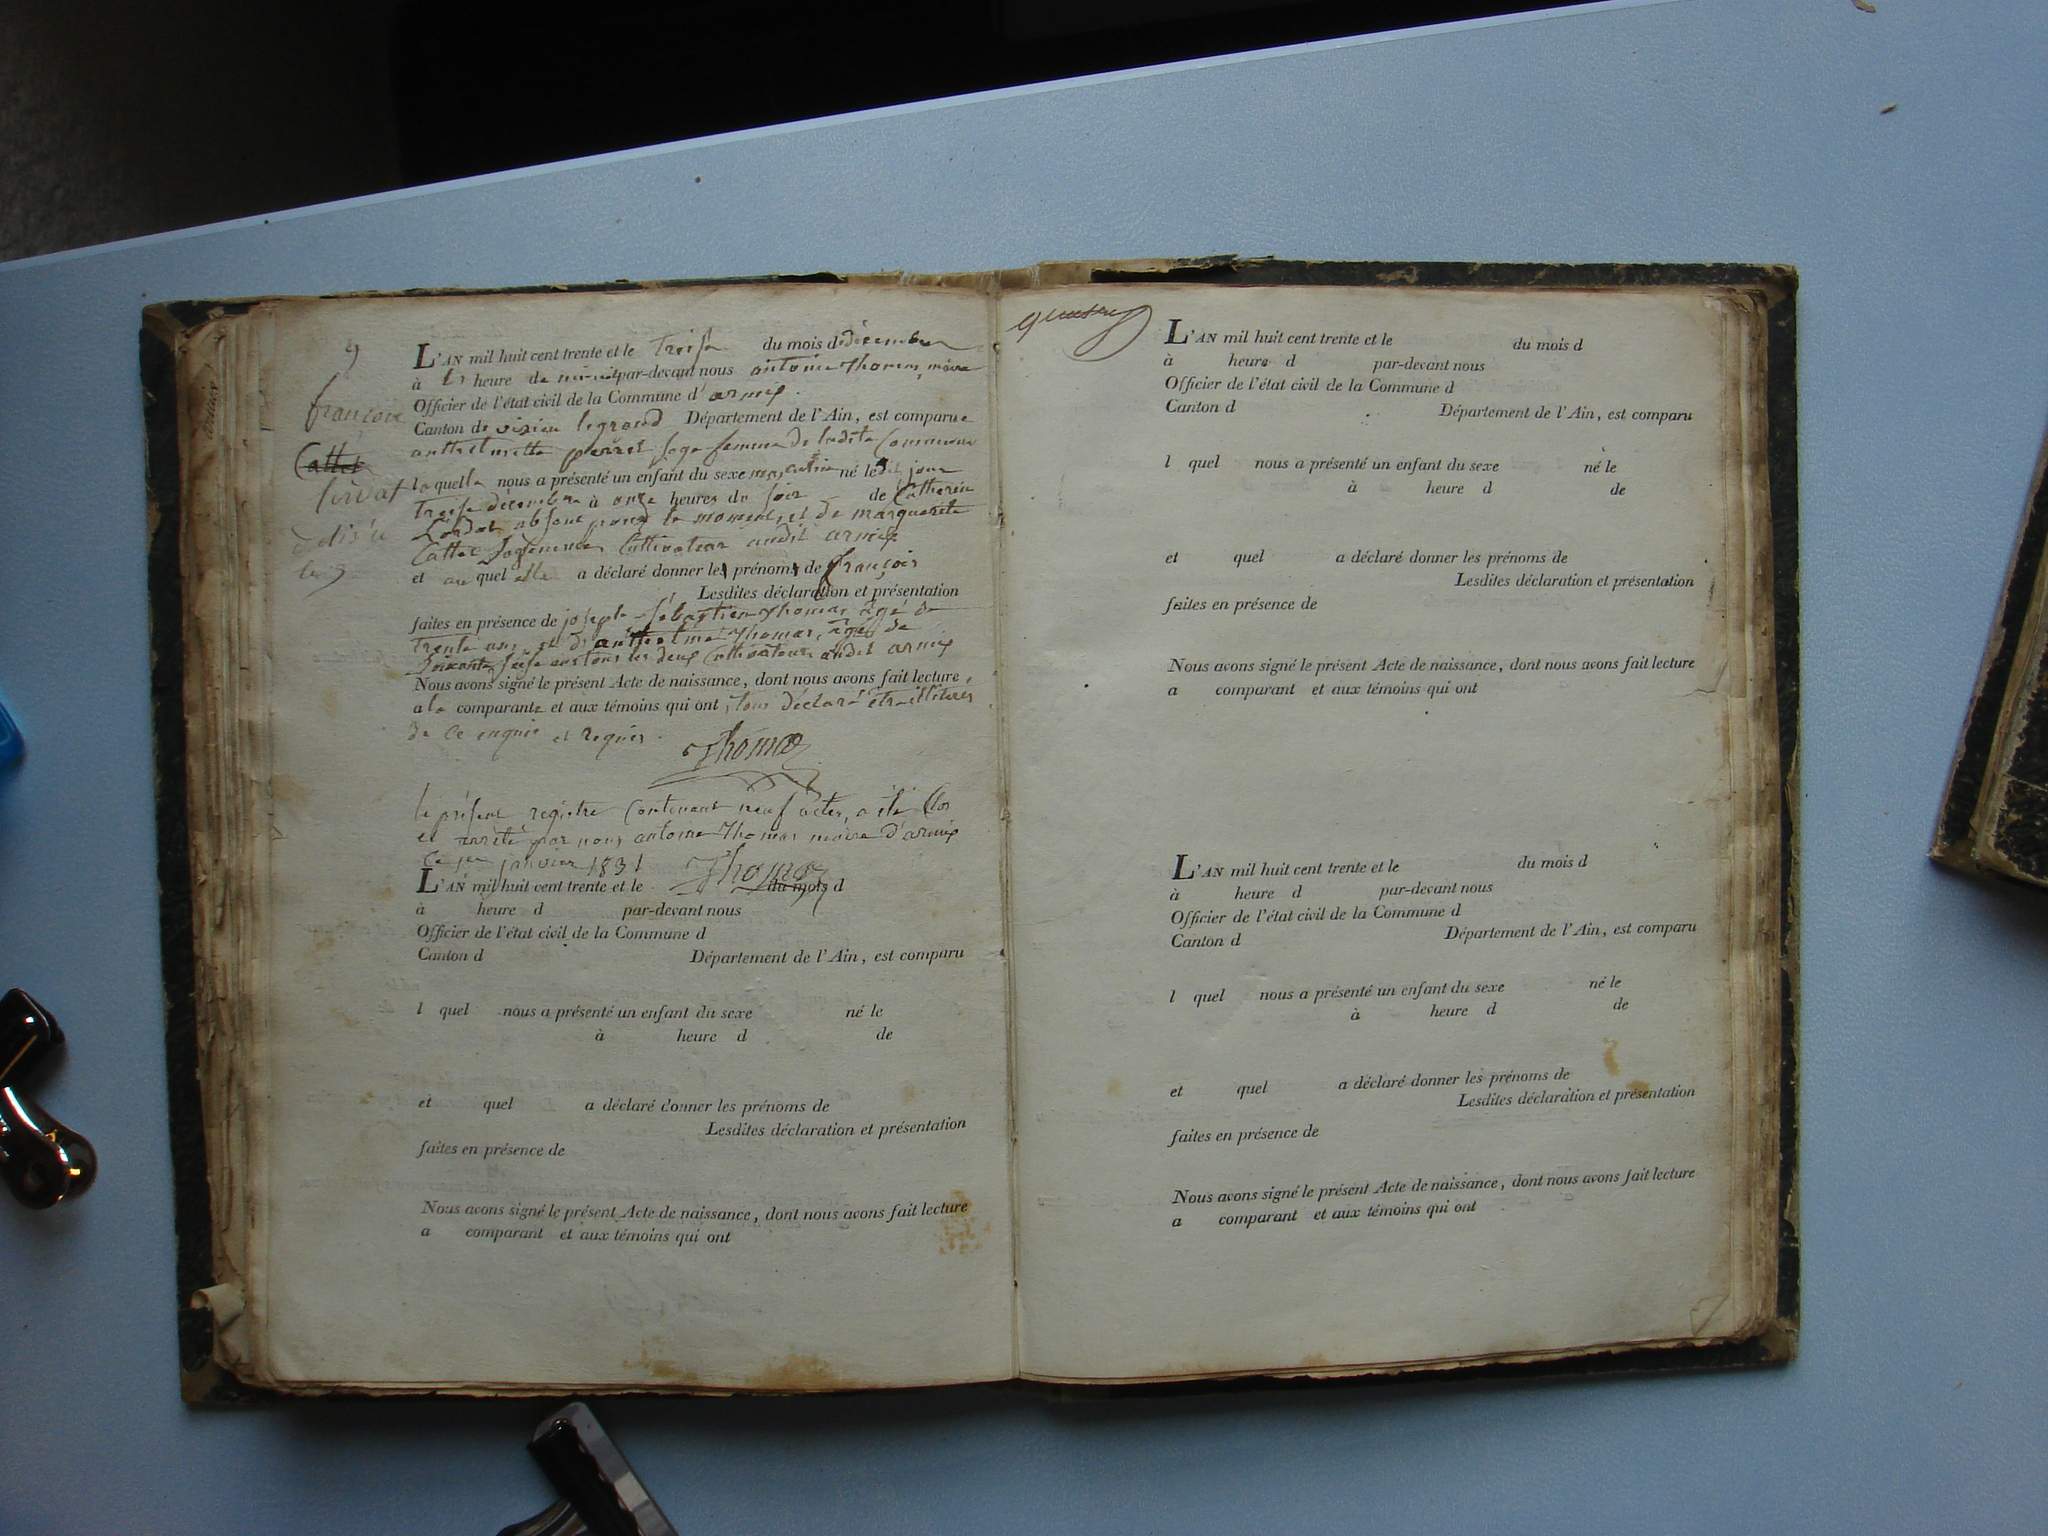 9
françois
Cattet
à
le 3
L'AN mil huit cent trente et le treise du mois d décembre
à heure de par-devant nous antoine Thomas, maire
Officier de l'état civil de la Commune d'armix.
Canton de virieu legrand Département de l'Ain, est comparue
perret sage femme de ladite Commune
laquelle nous a présenté un enfant du sexe masculin né le dit jour
treise décembre à onze heures du soir de Catherin
absent pour le moment, et de marguerite
Cattet Cultivateur audit armix
et au quel elle a déclaré donner le prénom de françois
Lesdites déclaration et présentation
faites en présence de joseph Sébastien Thomas, âgé de
trente ans, et d'anthelme Thomas, âgé de
soixante seise ans tous les deux Cultivateurs audit armix
Nous avons signé le présent Acte de naissance, dont nous avons fait lecture,
a la comparante et aux témoins qui ont, tous déclaré être illiteres
de ce enquis et requis.
Thomas
le présent registre Contenant neuf actes, a été Clos
et arrêté par nous antoine Thomas maire d'armix
Ce 1er janvier 1831
Thomas
L'AN mil huit cent trente et le du mois d
à heure d par-devant nous
Officier de l'état civil de la Commune d
Canton d Département de l'Ain, est comparu
l quel nous a présenté un enfant du sexe né le
à heure d de
et quel a déclaré donner les prénoms de
Lesdites déclaration et présentation
faites en présence de
Nous avons signé le présent Acte de naissance, dont nous avons fait lecture
a comparant et aux témoins qui ont
L'AN mil huit cent trente et le du mois d
à heure d par-devant nous
Officier de l'état civil de la Commune d
Canton d Département de l'Ain, est comparu
l quel nous a présenté un enfant du sexe né le
à heure d de
et quel a déclaré donner les prénoms de
Lesdites déclaration et présentation
faites en présence de
Nous avons signé le présent Acte de naissance, dont nous avons fait lecture
a comparant et aux témoins qui ont
L'AN mil huit cent trente et le du mois d
à heure d par-devant nous
Officier de l'état civil de la Commune d
Canton d Département de l'Ain, est comparu
l quel nous a présenté un enfant du sexe né le
à heure d de
et quel a déclaré donner les prénoms de
Lesdites déclaration et présentation
faites en présence de
Nous avons signé le présent Acte de naissance, dont nous avons fait lecture
a comparant et aux témoins qui ont